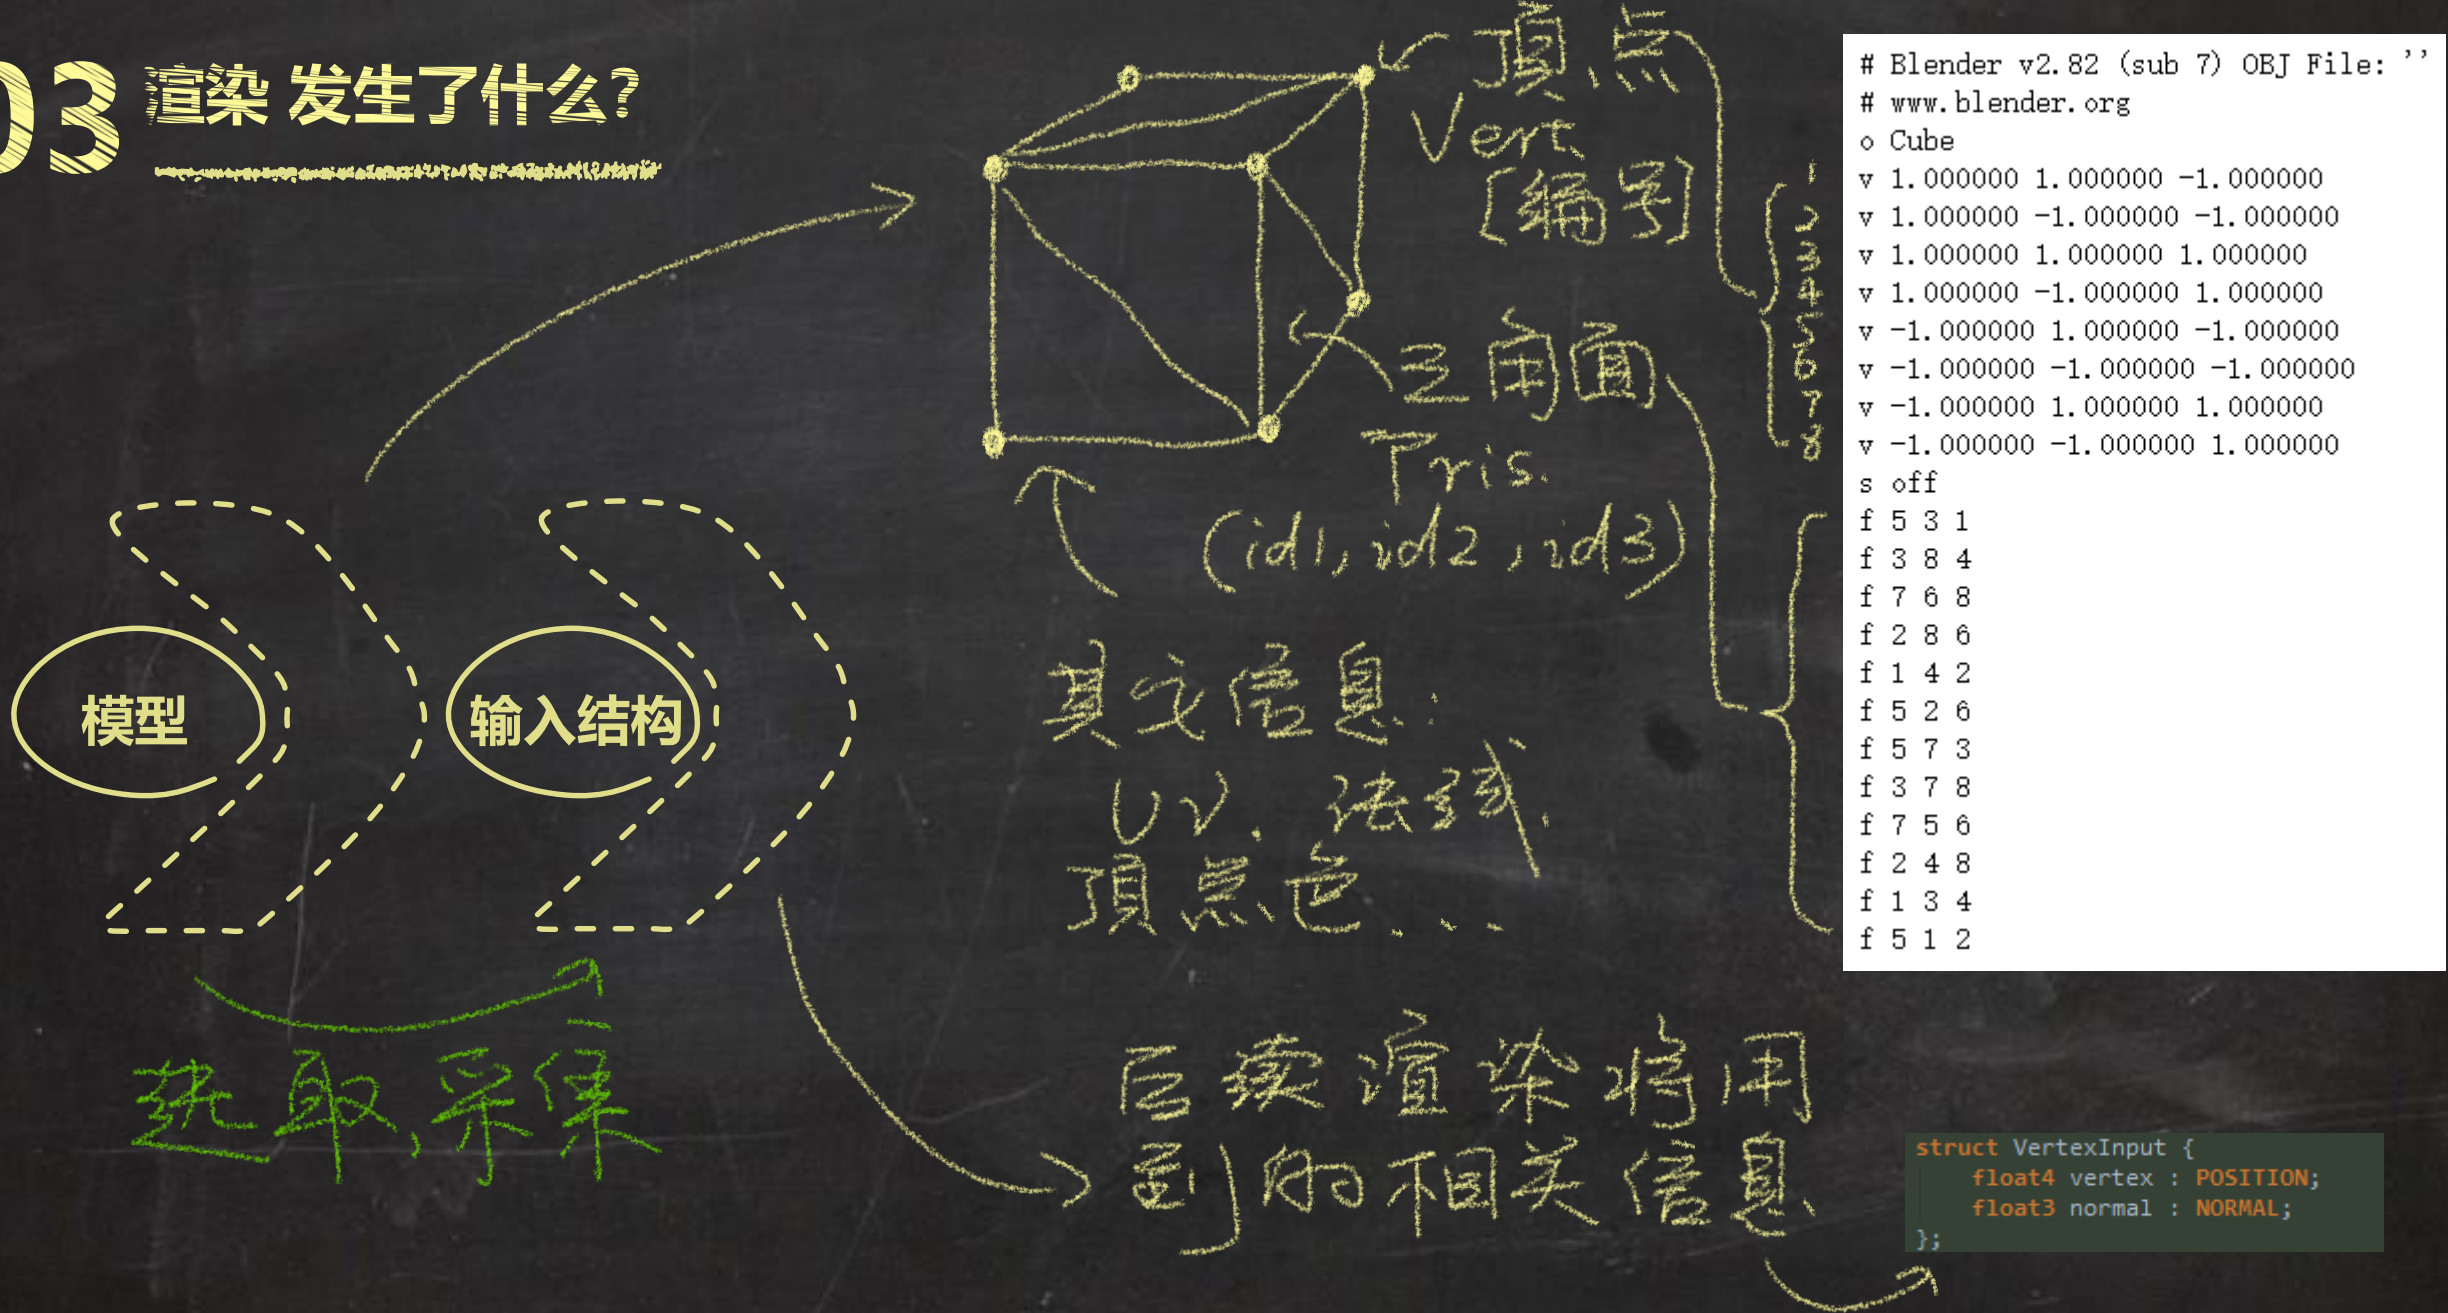 03 渲染 发生了什么?
頂点
Vert
[编号]
三角面
Tris.
(id1, id2, id3)
其它信息:
UV. 法线.
頂点色...
模型
输入结构
选取、采集
后续渲染将用
到的相关信息
1
2
3
4
5
6
7
8
# Blender v2.82 (sub 7) OBJ File: ''
# www.blender.org
o Cube
v 1.000000 1.000000 -1.000000
v 1.000000 -1.000000 -1.000000
v 1.000000 1.000000 1.000000
v 1.000000 -1.000000 1.000000
v -1.000000 1.000000 -1.000000
v -1.000000 -1.000000 -1.000000
v -1.000000 1.000000 1.000000
v -1.000000 -1.000000 1.000000
s off
f 5 3 1
f 3 8 4
f 7 6 8
f 2 8 6
f 1 4 2
f 5 2 6
f 5 7 3
f 3 7 8
f 7 5 6
f 2 4 8
f 1 3 4
f 5 1 2
struct VertexInput {
float4 vertex : POSITION;
float3 normal : NORMAL;
};